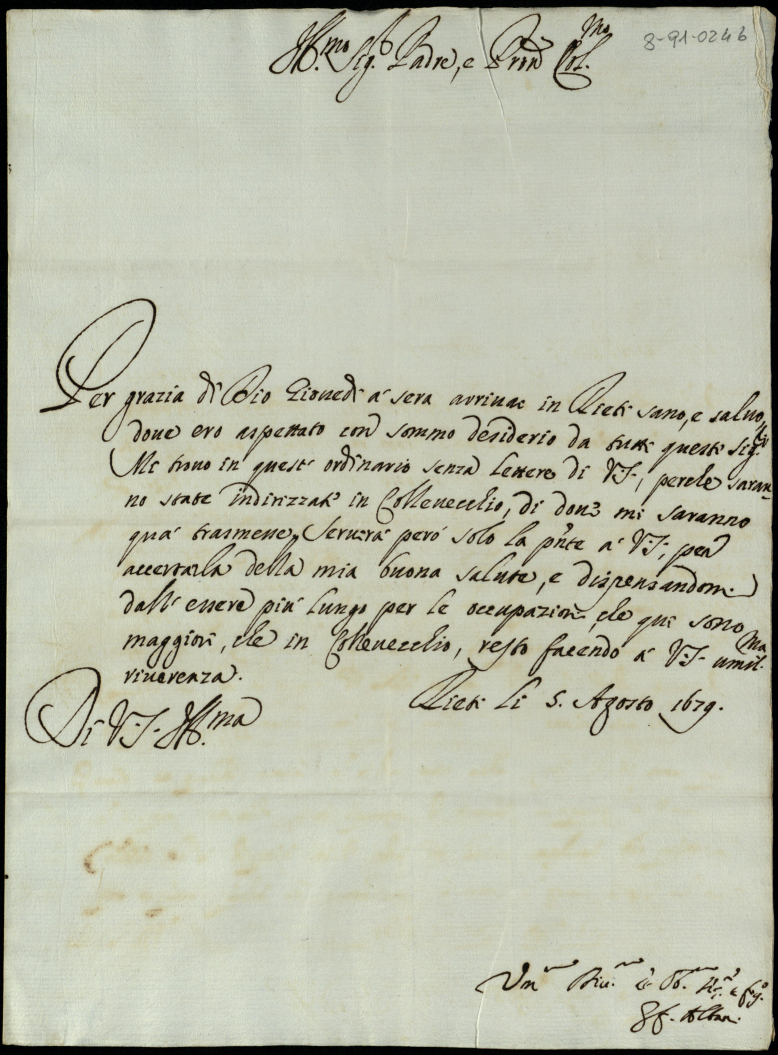 Ill.mo Sig.r Padre, e Pron Col.mo
8-91-0246
Per grazia di Dio Giovedi à sera arrivai in Rieti sano, e salvo,
dove ero aspettato con sommo desiderio da tutti questi Sig.ri
Mi trovo in questo ordinario senza lettere di V.S., perche saran-
no state indirizzate in Collevecchio, di dove mi saranno
quà trasmesse. Servirà però solo la pnte à V.S. per
accertarla della mia buona salute, e dispensandomi
dall'essere più lungo per le occupazioni, che qui sono
maggiori, che in Collevecchio, resto facendo à V.S. umil.ma
riverenza.
Rieti li 5. Agosto 1679.
Di V.S. Ill.ma